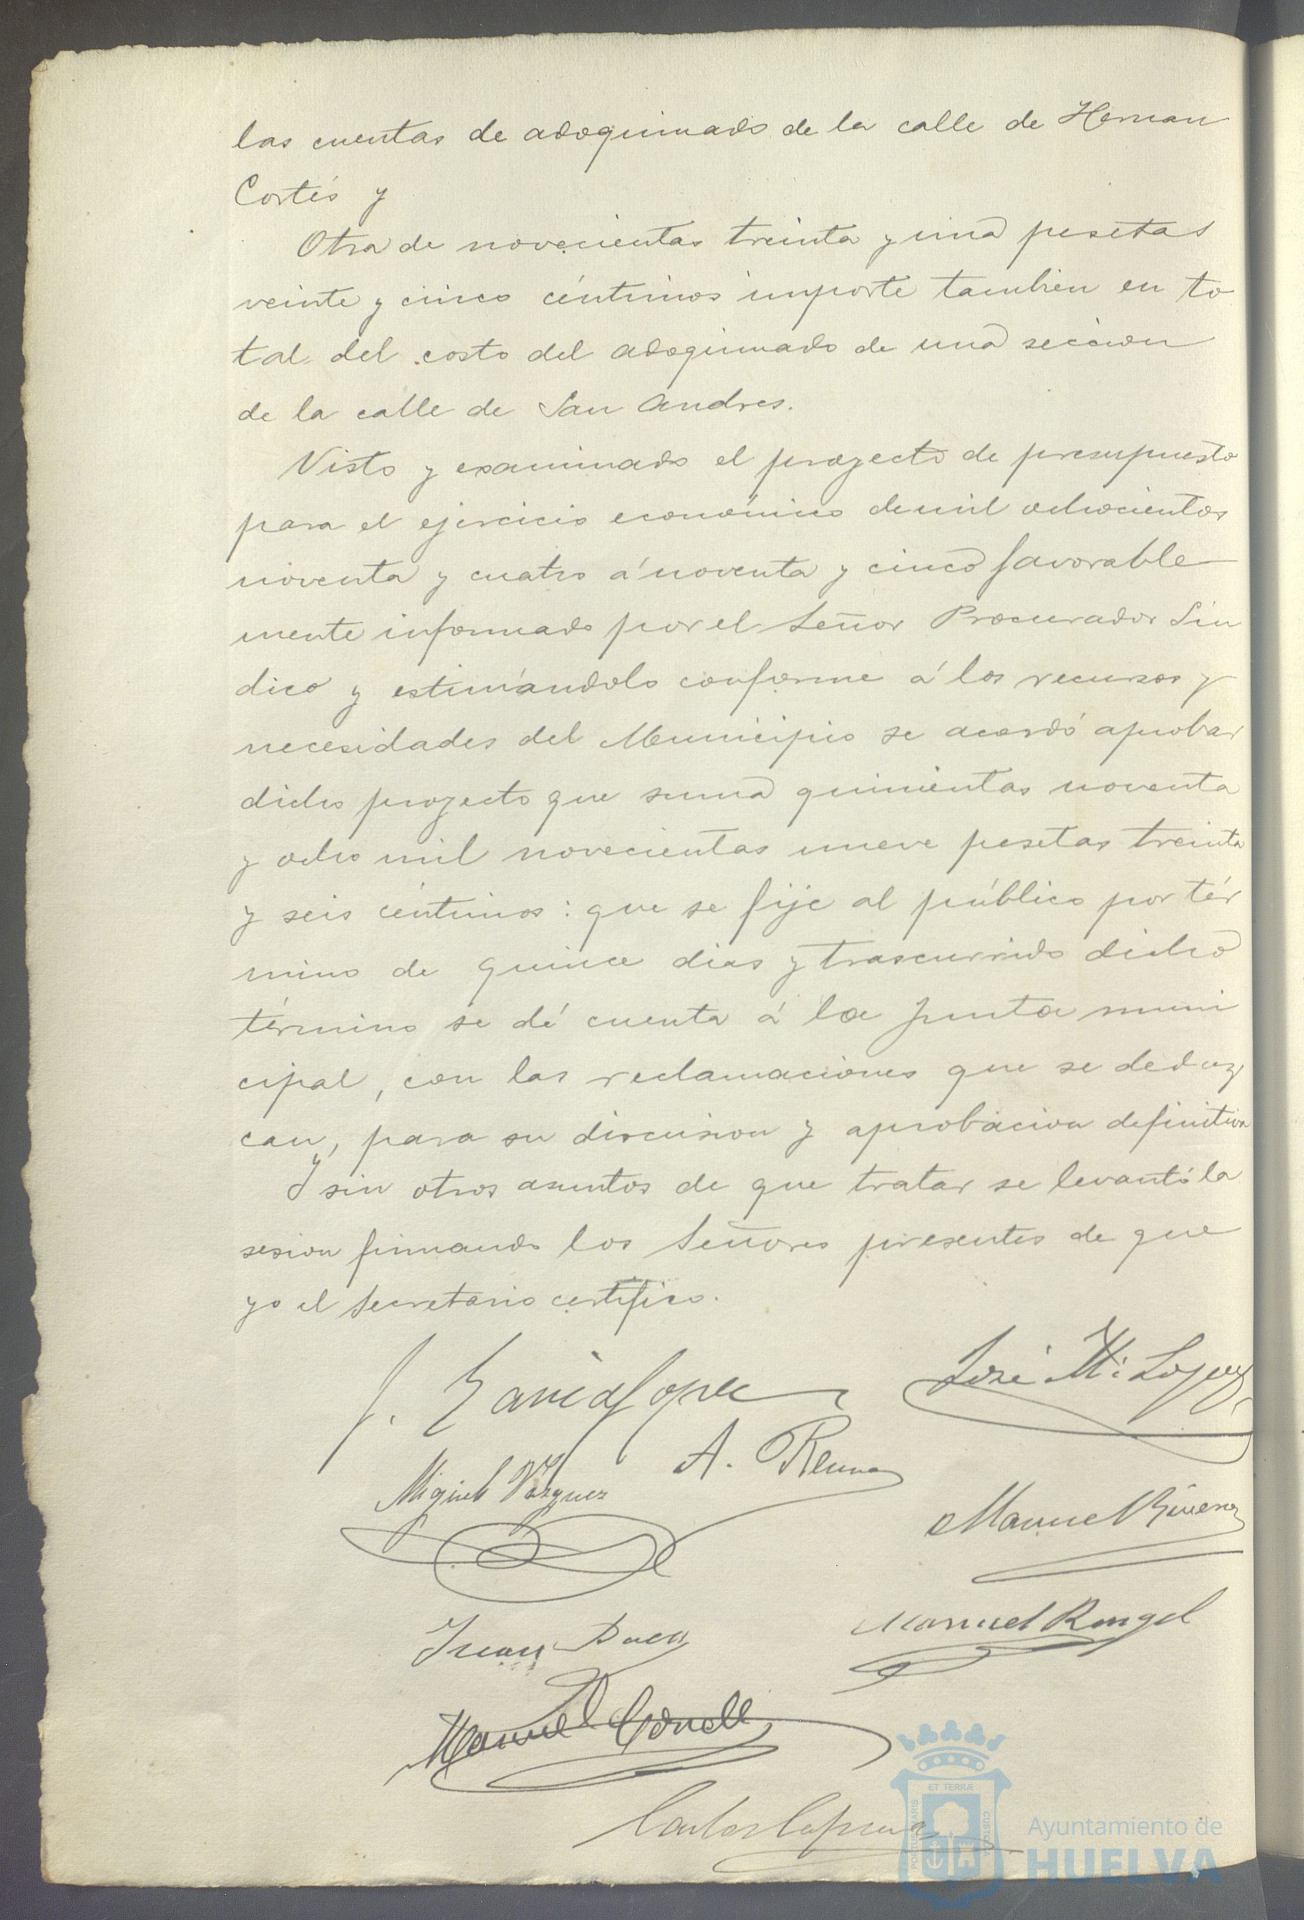 las cuentas de adoquinado de la calle de Hernan
Cortés y
Otra de novecientas treinta y una pesetas
veinte y cinco céntimos importe tambien en to
tal del costo del adoquinado de una seccion
de la calle de San Andres.
Visto y examinado el proyecto de presupuesto
para el ejercicio económico de mil ochocientos
noventa y cuatro á noventa y cinco favorable
mente informado por el Señor Procurador Sín
dico y estimándolo conforme á los recursos y
necesidades del Municipio se acordó aprobar
dicho proyecto que suma quinientas noventa
y ocho mil novecientas nueve pesetas treinta
y seis céntimos: que se fije al público por tér
mino de quince dias y trascurrido dicho
término se dé cuenta á la Junta muni
cipal, con las reclamaciones que se deduz
can, para su discusion y aprobacion definitiva
Y sin otros asuntos de que tratar se levantó la
sesion firmando los Señores presentes de que
yo el Secretario certifico.
J. García López
José Mª López
Miguel Vázquez
A.
Manuel
Juan
Manuel Rangel
Manuel
Carlos
ET TERRÆ
PORTUS MARIS
CUSTODIA
Ayuntamiento de
HUELVA